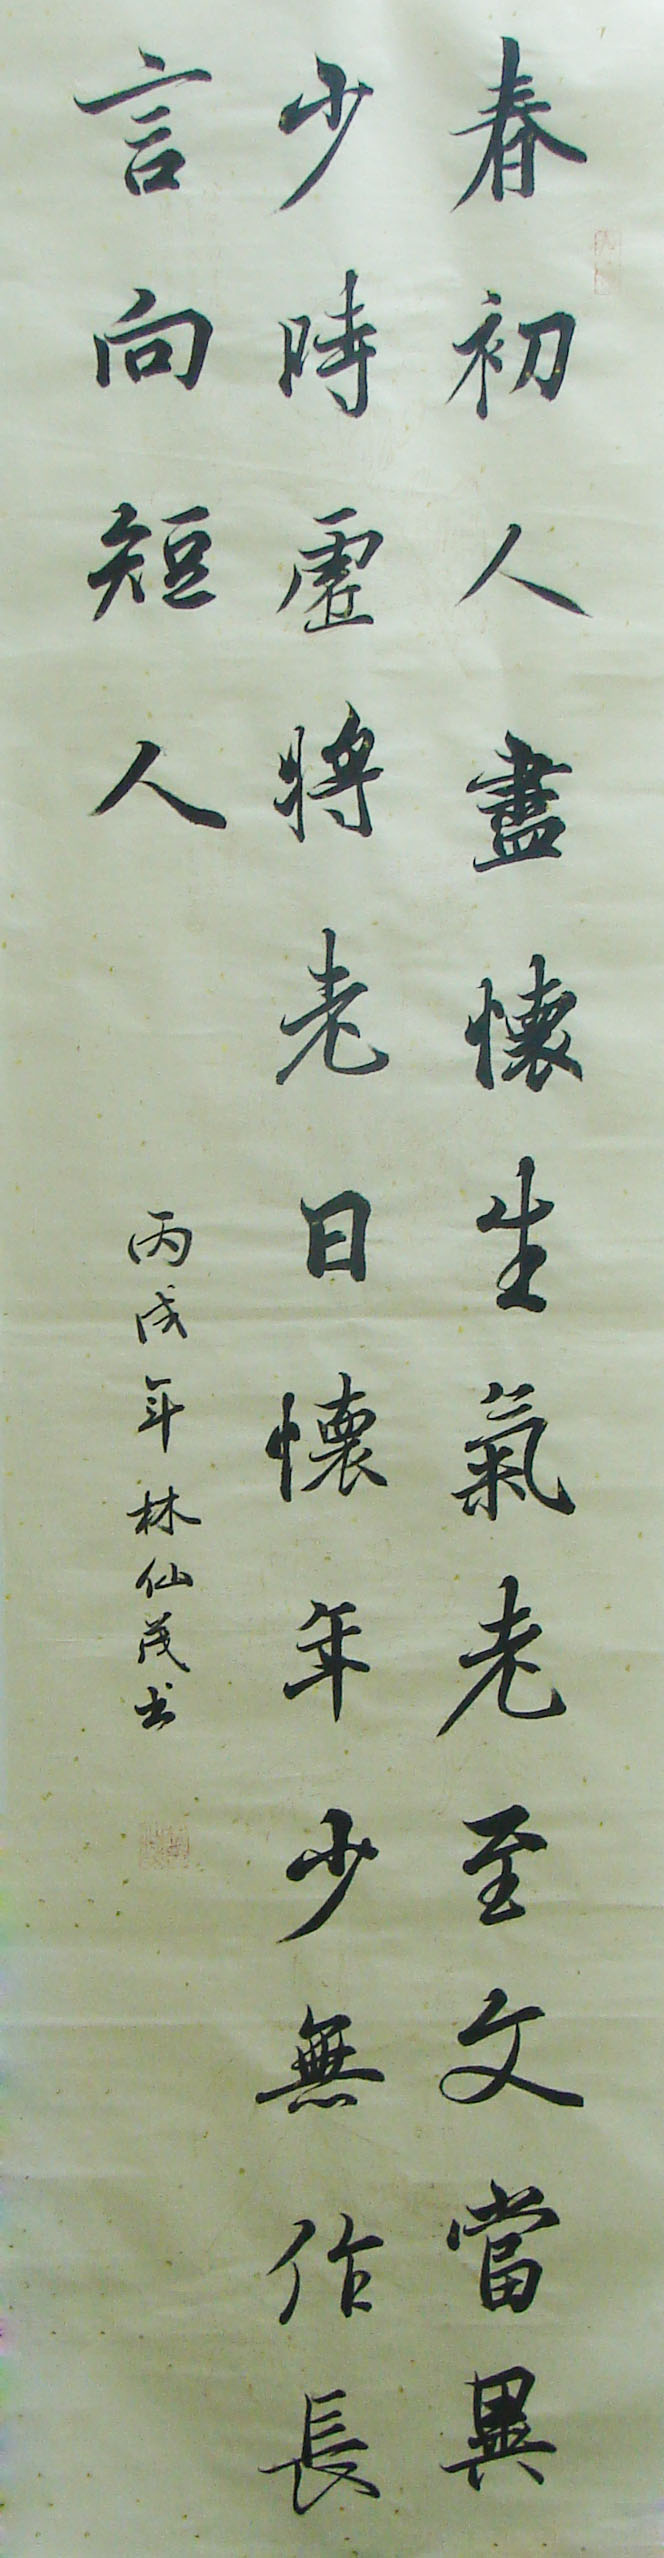 春初人盡懷生氣老至文當異
少時虛將老日懷年少無作長
言向短人
丙戌年林仙茂书